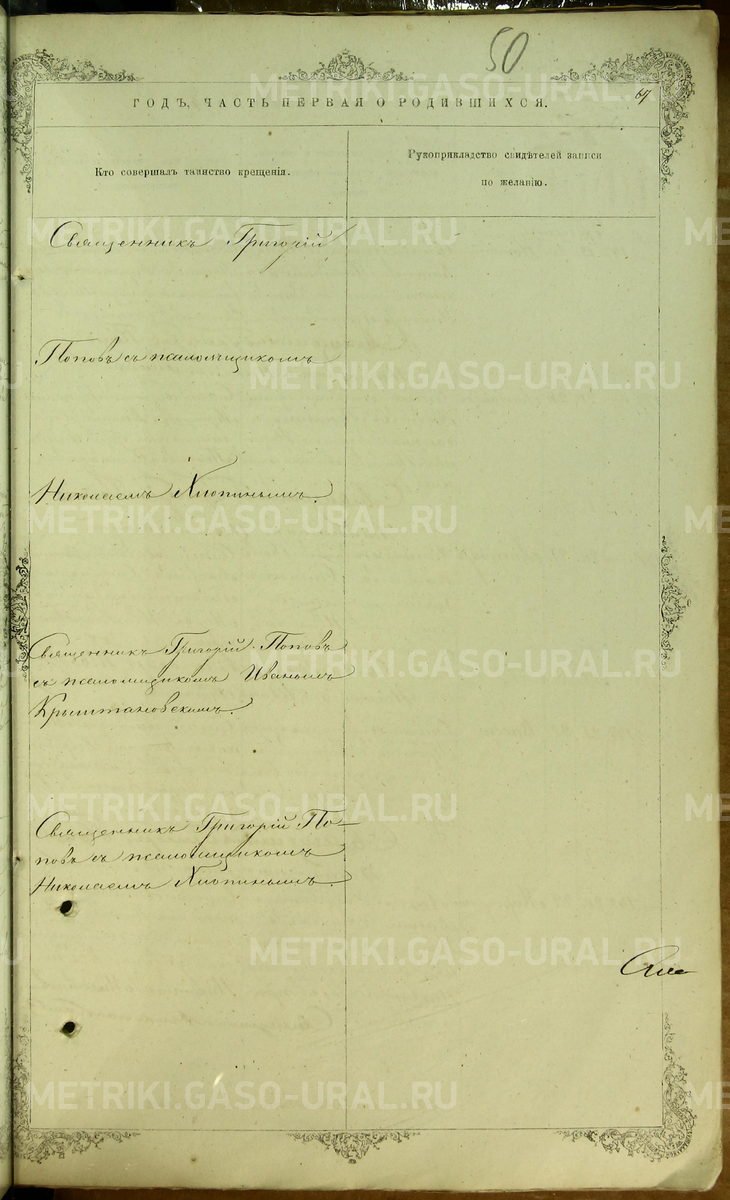 50
67
ГОДЪ, ЧАСТЬ ПЕРВАЯ О РОДИВШИХСЯ.
Кто совершалъ таинство крещенія.
Рукоприкладство свидѣтелей записи
по желанію.
Священникъ Григорій
Поповъ съ псаломщикомъ
Николаемъ Хлопинымъ.
Священникъ Григорій Поповъ
съ псаломщикомъ Иваномъ
Крыштановскимъ.
Священникъ Григорій По-
повъ съ псаломщикомъ
Николаемъ Хлопинымъ.
METRIKI.GASO-URAL.RU